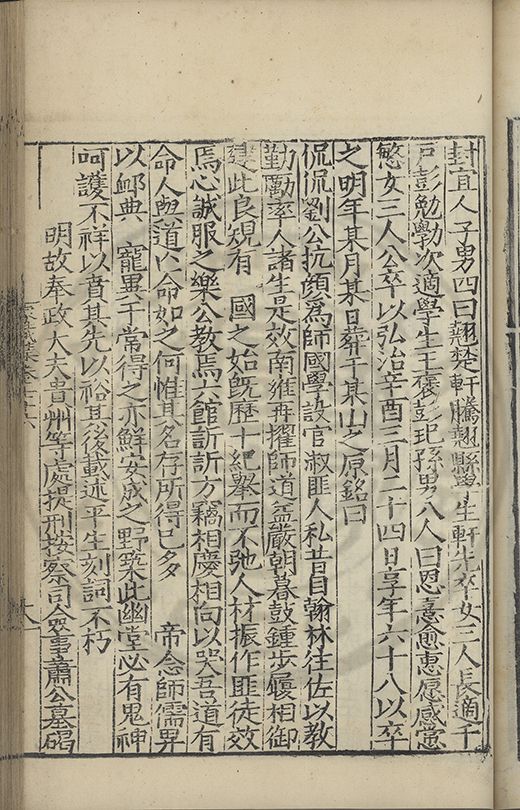 封宜人子男四曰翹楚軒騰翹縣學生軒先卒女三人長適千
戶彭勉勷次適學生王褒彭玘孫男八人曰恩憙愈惠愿感慤
慜女三人公卒以弘治辛酉三月二十四日享年六十八以卒
之明年某月某日葬于某山之原銘曰
侃侃劉公抗顏爲師國學設官淑匪人私昔自翰林往佐以教
勤勵率人諸生是效南雍再擢師道益嚴朝暮鼓鍾步履相御
建此良規有　國之始旣歷十紀舉而不弛人材振作匪徒效
焉心誠服之樂公教焉六館訢訢方竊相慶相向以哭吾道有
命人與道以命如之何惟其名存所得已多　　帝念師儒畀
以卹典　寵異于常得之亦鮮安成之野築此幽堂必有鬼神
呵護不祥以賁其先以裕其後載述平生刻詞不朽
明故奉政大夫貴州等處提刑按察司僉事蕭公墓碣